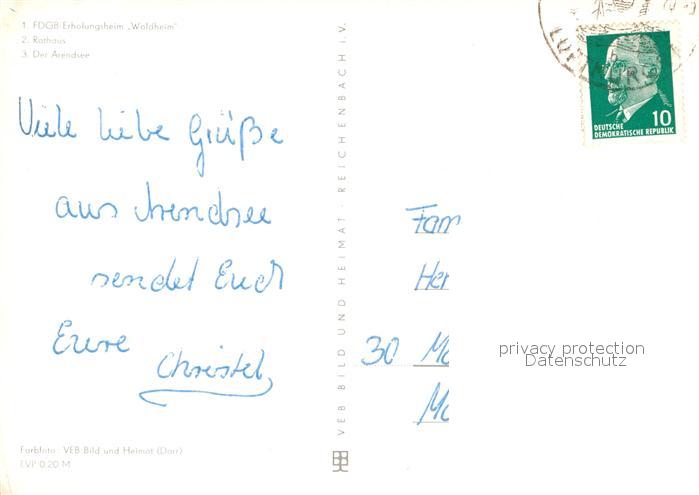 1. FDGB-Erholungsheim „Waldheim"
2. Rathaus
3. Der Arendsee
Viele liebe Grüße
aus Arendsee
sendet Euch
Eure
Christel
Farbfoto: VEB Bild und Heimat (Darr)
EVP 0.20 M
VEB BILD UND HEIMAT · REICHENBACH I.V.
10
DEUTSCHE
DEMOKRATISCHE REPUBLIK
Fam
Her
30 Ma
Mo
privacy protection
Datenschutz